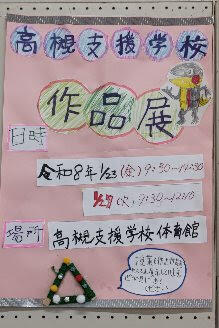 高槻支援学校
作品展
日時
令和8年1/23(金)9:30〜12:30
1/27(火)9:30〜12:10
場所
高槻支援学校体育館